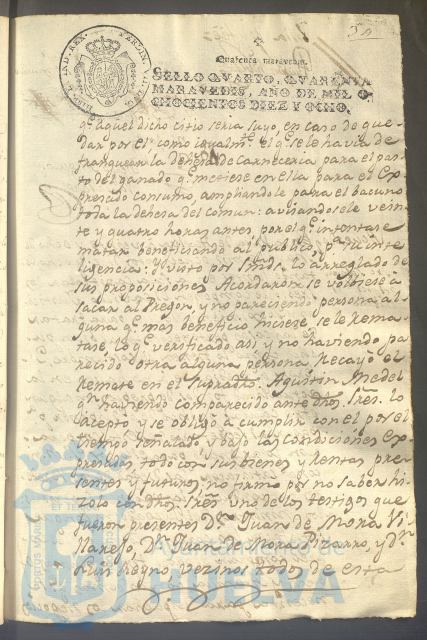 Quarenta maravedis.
SELLO QVARTO, QVARENTA
MARAVEDIS, AÑO DE MIL O-
CHOCIENTOS DIEZ Y OCHO.
qe. aquel dicho sitio seria suyo, en caso de que-
dar por el; como igualmte. el qe. se le havia de
franquear la dehesa de Carneceria para el pas-
to del ganado qe. metiese en ella para el ex-
presado consumo, ampliandole para el bacuno
toda la dehesa del comun: avisandosele vein-
te y quatro horas antes por el qe. intentase
matar beneficiando al publico, pa. su inte-
ligencia: Y visto por Smds. lo arreglado de
sus proposiciones Acordaron se volviese á
sacar al Pregon y no pareciendo persona al-
guna qe. mas beneficio hiciese se le Rema-
tase, lo qe. verificado asi y no haviendo pa-
recido otra alguna persona Recayó el
Remate en el supradho. Agustin Medel
qn. haviendo comparecido ante dhos. Sres. lo
acepto y se obligó a cumplir con el por el
tiempo señalado y bajo las condiciones ex-
presadas, todo con sus bienes y Rentas pre-
sentes y futuros, no firmó por no saber hi-
zolo con dhos. Sres. uno de los testigos que
fueron presentes Dn. Juan de Mora Vi-
llaseñor, Dn. Juan de Mora Pizarro, y Dn.
Luis vezinos todos de esta
HUELVA